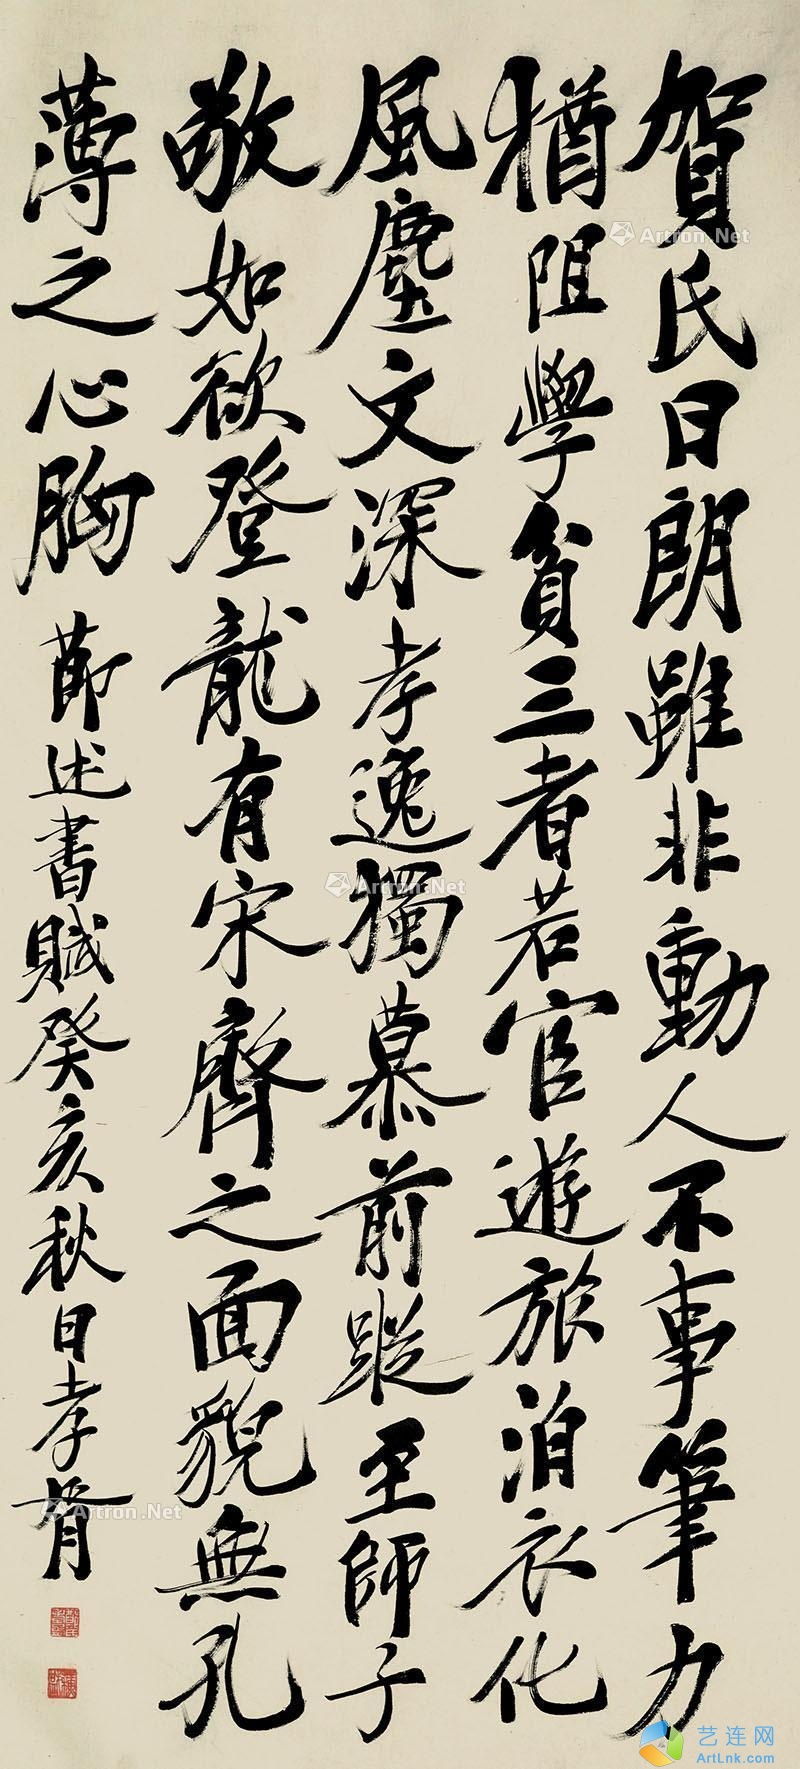 賀氏日朗雖非動人不事筆力
猶阻學貧三者若官遊旅泊衣化
風塵文深孝逸獨慕前蹤至師子
敬如欲登龍有宋齊之面貌無孔
薄之心胸
節述書賦癸亥秋日孝胥
Artron.Net
Artron.Net
Artron.Net
艺连网
ArtLnk.com